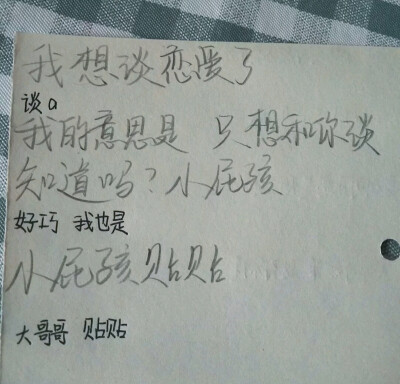 我想谈恋爱了
谈a
我的意思是 只想和你谈
知道吗？小屁孩
好巧 我也是
小屁孩贴贴
大哥哥 贴贴